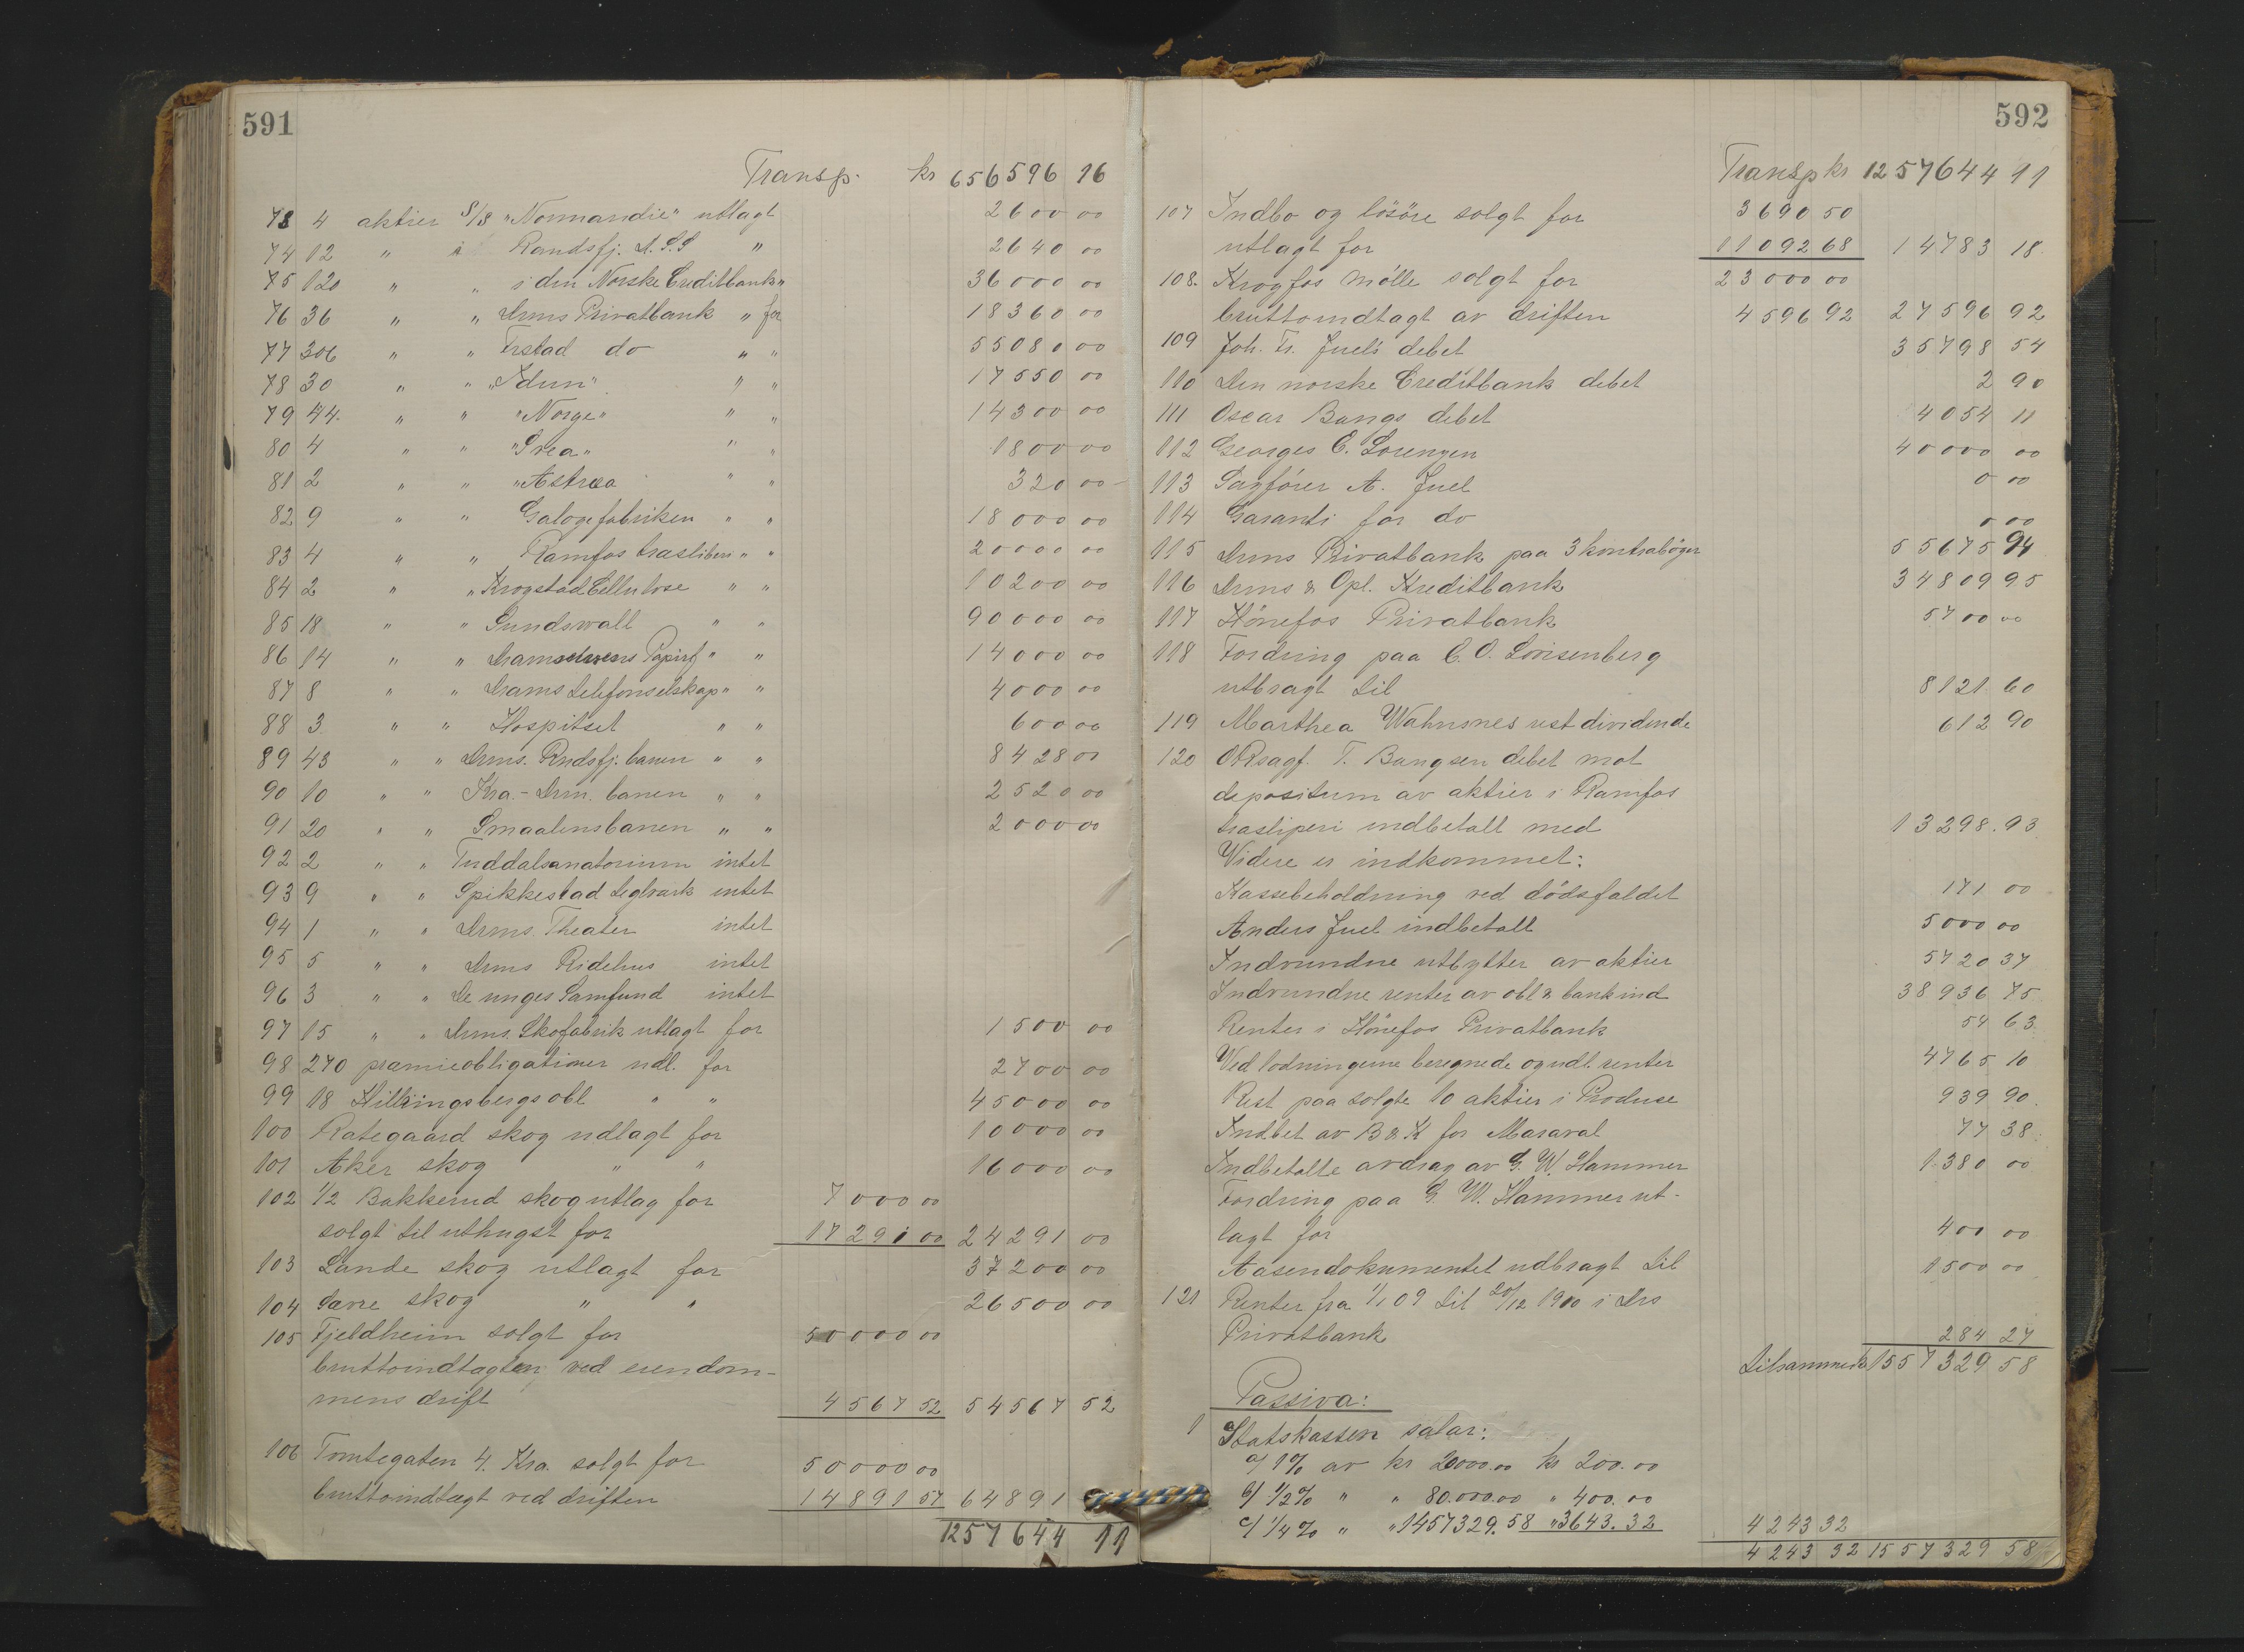 591
Transp. kr 656596 16
73 4 aktier S/S "Normandie" utlagt 2600 00
74 12 " i Randsfj. A.S.S " 2640 00
75 120 " " i den Norske Creditbank " 36000 00
76 36 " " Drms Privatbank " for 18360 00
77 306 " " Frstad do " " 55080 00
78 30 " " "Idun" " " 17550 00
79 44. " " "Norge" " " 14300 00
80 4 " " "Svea" " " 1800 00
81 2 " " "Astræa " " 320 00
82 9 " " Galogefabriken " " 18000 00
83 4 " " Ramfos træsliberi " " 20000 00
84 2 " " Krogstad Cellulose " " 10200 00
85 18 " " Sundswall " " 90000 00
86 14 " " Dramselvens Papirf " " 14000 00
87 8 " " Drams telefonselskap " " 4000 00
88 3 " " Hospitset " " 600 00
89 43 " " Drms. Rndsfj. banen " " 8428 00
90 10 " " Kra.-Drm. banen " " 2520 00
91 20 " " Smaalensbanen " " 2000 00
92 2 " " Tuddalsanatorium intet
93 9 " " Spikkestad teglværk intet
94 1 " " Drms. Theater intet
95 5 " " Drms Ridehus intet
96 3 " " De unges Samfund intet
97 15 " " Drms. Skofabrik utlagt for 1500 00
98 270 præmieobligationer udl. for 2700 00
99 18 Hillringsbergs obl " " 45000 00
100 Rategaard skog udlagt for 10000 00
101 Aker skog " " 16000 00
102 1/2 Bakkerud skog utlag for 7000 00
solgt til uthugst for 17291 00 24291 00
103 Lande skog utlagt for 37200 00
104 Sørre skog " " 26500 00
105 Fjeldheim solgt for 50000 00
bruttoindtagten ved eiendom-
mens drift 4567 52 54567 52
106 Tomtegaten 4. Kra. solgt for 50000 00
bruttoindtægt ved driften 14891 57 64891
1257644 11
592
Transp kr 1257644 11
107 Indbo og løsøre solgt for 3690 50
utlagt for 11092 68 14783 18
108. Krogfos mølle solgt for 23000 00
bruttoindtagt av driften 4596 92 27596 92
109 Joh. Fr. Juels debet 35798 54
110 Den norske Creditbank debet 2 90
111 Oscar Bangs debet 4054 11
112 Georges C. Lorenzen 40000 00
113 Sagfører A. Juel 0 00
114 Garanti for do 0 00
115 Drms Privatbank paa 3 kontrabøger 55675 94
116 Drms & Opl. Kreditbank 34809 95
117 Hønefos Privatbank 5700 00
118 Fordring paa C. O. Lovisenberg
utbragt til 8121 60
119 Marthea Wahnsnes rest dividende 612 90
120 ORsagf. T. Bangsen debet mot
depositum av aktier i Ramfos
træsliperi indbetalt med 13298.93
Videre er indkommet:
Kassebeholdning ved dødsfaldet 171 00
Anders Juel indbetalt 5000 00
Indvundne utbytter av aktier 5720 37
Indvundne renter av obl & bankind 38936 75
Renter i Hönefos Privatbank 54 63
Ved lodningerne beregnede og udl. renter 4765 10
Rest paa solgte 10 aktier i Produce 939 90
Indbet av B & K for Maraval 77 38
Indbetalte avdrag av G. W. Hammer 1380 00
Fordring paa G. W. Hammer ut-
lagt for 400 00
Aasendokumentet udbragt til 1500 00
121 Renter fra 1/1 09 til 20/12 1910 i Drs
Privatbank 284 27
tilsammen kr 1557329 58
Passiva:
1 Statskassen salar:
a/ 1% av kr 20000.00 kr 200.00
b/ 1/2% " " 80.000.00 " 400.00
c/ 1/4% " " 1457329.58 " 3643.32 4243 32
4243 32 1557329 58